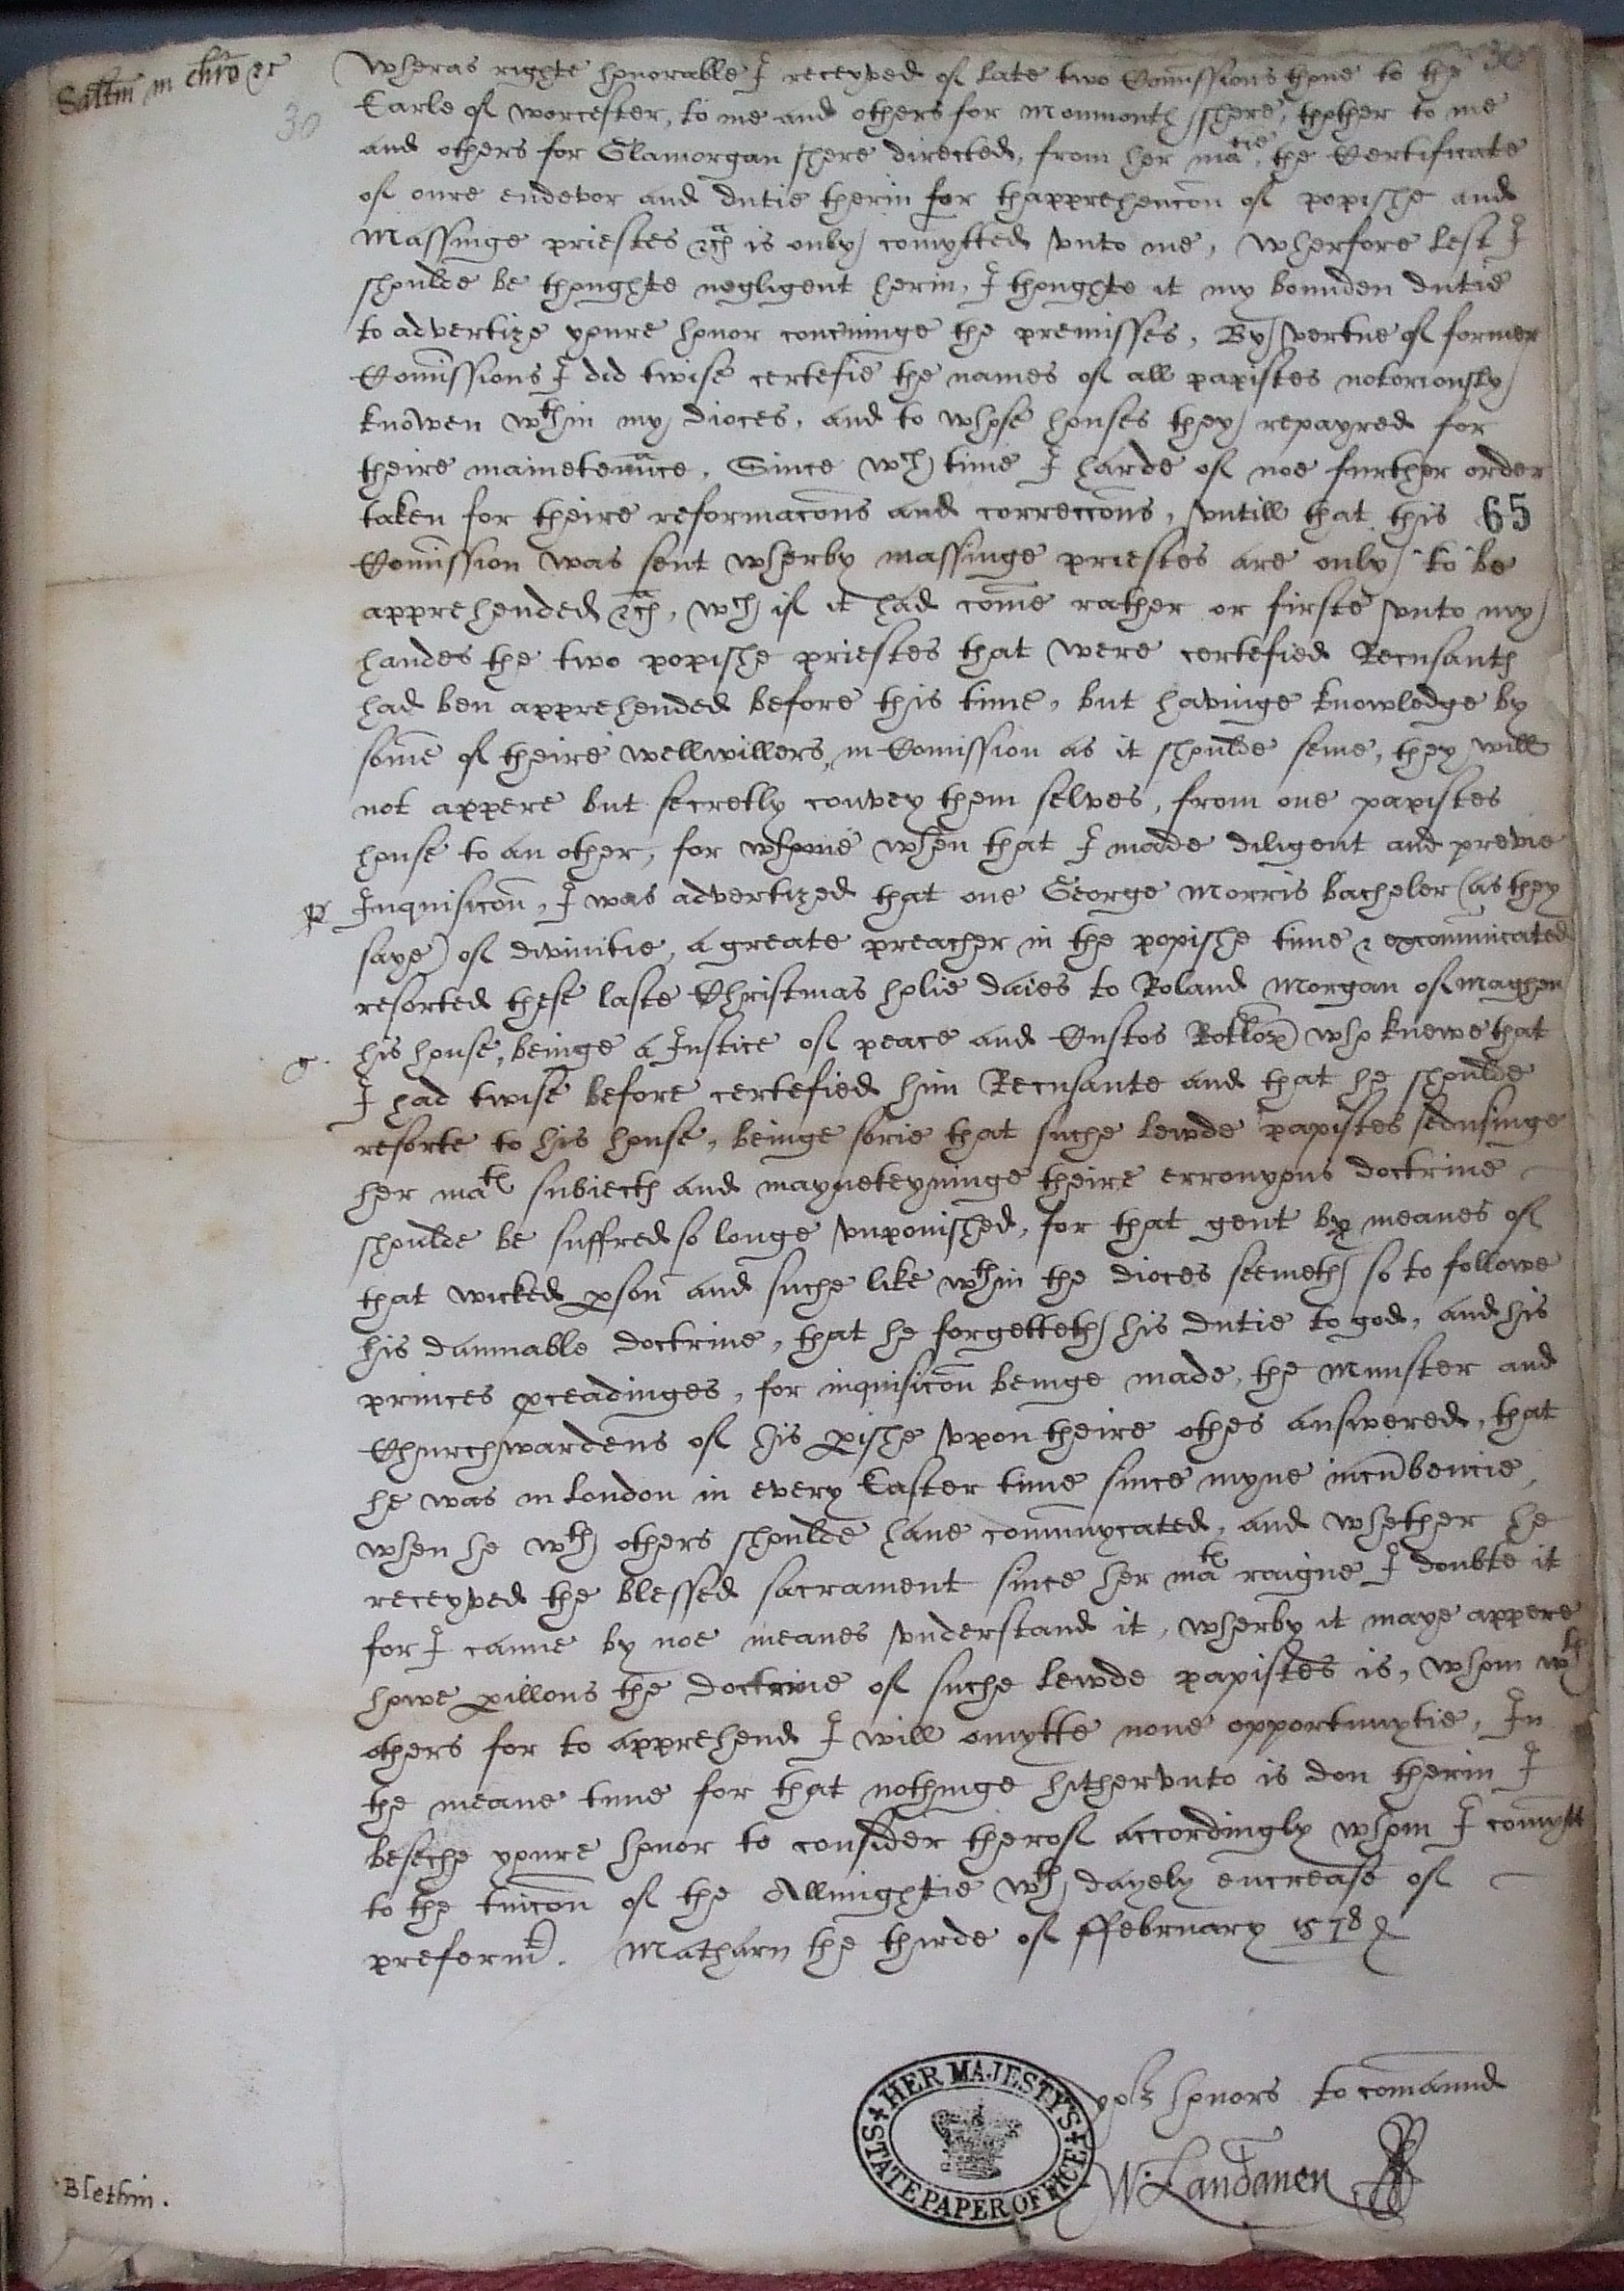 Saltm in chro &c
30
30
Wheras righte honorable I receyved of late two Comissions thone to the
Earle of worcester, to me and others for Monmouth shere, thother to me
and others for Glamorgan shere directed, from her matie, the Certificate
of oure endevor and dutie therin for thapprehencon of popishe and
Massinge priestes &c is only comytted vnto me, Wherfore lest I
shoulde be thoughte negligent herin, I thoughte it my bounden dutie
to advertize youre honor concninge the premisses, By vertue of former
Comissions I did twise certefie the names of all papistes notoriously
knowen wthin my dioces, and to whose houses they repayred for
theire mainetenuce, Since wch time I harde of noe further order
taken for theire reformacons and correccons, vntill that this 65
Comission was sent wherby massinge priestes are only to be
apprehended &c, wch if it had come rather or firste vnto my
handes the two popishe priestes that were certefied Recusantes
had ben apprehended before this time, but havinge knowledge by
some of theire wellwillers, in Comission as it shoulde seme, they will
not appere but secretly convey them selves, from one papistes
house to an other, for whome when that I made diligent and previe
Inquisicon, I was advertized that one George Morris bacheler (as they
saye) of divinitie, a greate preacher in the popishe time & excommunicated
resorted these laste Christmas holie daies to Roland Morgan of maghen
his house, beinge a Justice of peace and Custos Rotlor who knewe that
I had twise before certefied him Recusante and that he shoulde
resorte to his house, beinge sorie that suche lewde papistes sedusinge
her mates subiectes and mayneteyninge theire erronyous doctrine
shoulde be suffred so longe vnponished, for that gent by meanes of
that wicked pson and suche like wthin the dioces seemeth so to followe
his damnable doctrine, that he forgetteth his dutie to god, and his
princes pceadinges, for inquisicon beinge made, the Minster and
Churchwardens of his pishe vpon theire othes answered, that
he was in London in every Easter time since myne incubencie,
when he wth others shoulde haue communycated, and whether he
receyved the blessed sacrament since her mates raigne I doubte it
for I canne by noe meanes vnderstand it, wherby it maye appere
howe pillous the doctrine of suche lewde papistes is, whom wth
others for to apprehend I will omytte none opportunytie, In
the meane time for that nothinge hithervnto is don therin I
beseche youre honor to consider therof accordingly whom I comytt
to the tuicon of the Allmightie wth dayely encrease of
prefermt. Matharn the thirde of ffebruary 1578
yor honors to comaund
W: Landaven
HER MAJESTY'S STATE PAPER OFFICE
Blethin.